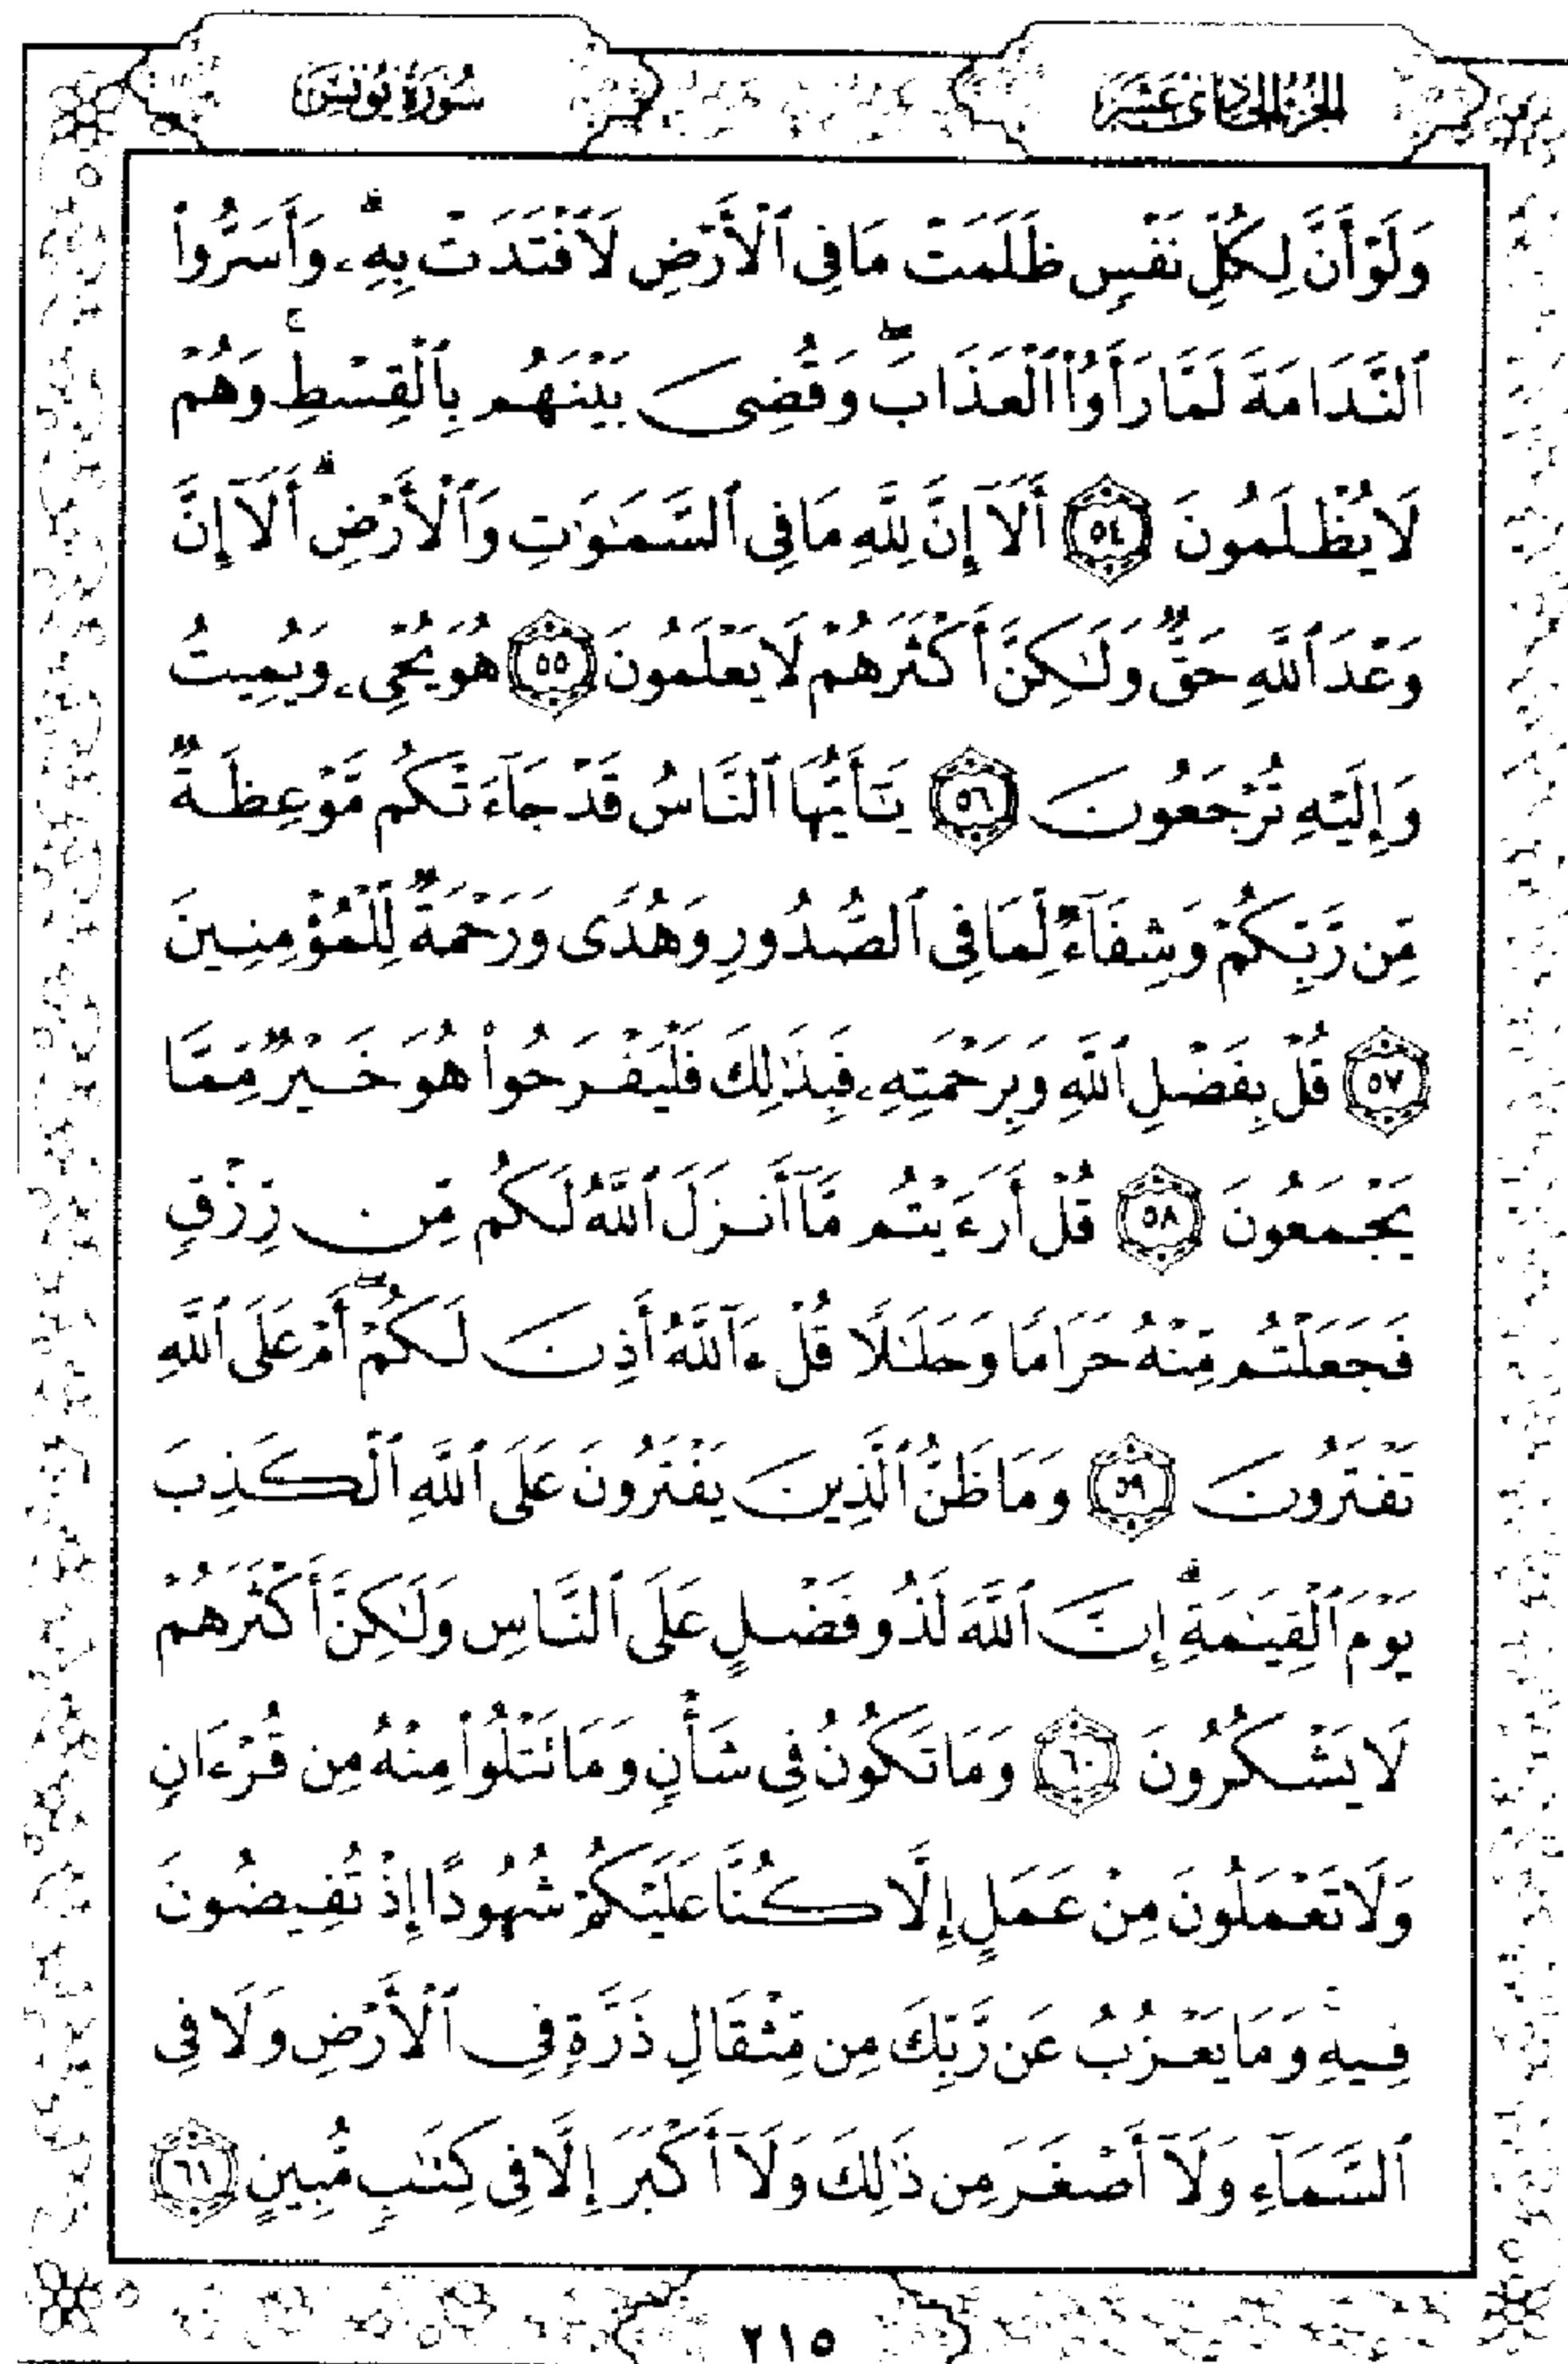 الجزء الحادي عشر
سورة يونس
وَلَوْ أَنَّ لِكُلِّ نَفْسٍ ظَلَمَتْ مَا فِى ٱلْأَرْضِ لَٱفْتَدَتْ بِهِۦۗ وَأَسَرُّوا۟
ٱلنَّدَامَةَ لَمَّا رَأَوُا۟ ٱلْعَذَابَۖ وَقُضِىَ بَيْنَهُم بِٱلْقِسْطِۚ وَهُمْ
لَا يُظْلَمُونَ ٥٤ أَلَآ إِنَّ لِلَّهِ مَا فِى ٱلسَّمَٰوَٰتِ وَٱلْأَرْضِۗ أَلَآ إِنَّ
وَعْدَ ٱللَّهِ حَقٌّ وَلَٰكِنَّ أَكْثَرَهُمْ لَا يَعْلَمُونَ ٥٥ هُوَ يُحْىِۦ وَيُمِيتُ
وَإِلَيْهِ تُرْجَعُونَ ٥٦ يَٰٓأَيُّهَا ٱلنَّاسُ قَدْ جَآءَتْكُم مَّوْعِظَةٌ
مِّن رَّبِّكُمْ وَشِفَآءٌ لِّمَا فِى ٱلصُّدُورِ وَهُدًى وَرَحْمَةٌ لِّلْمُؤْمِنِينَ
٥٧ قُلْ بِفَضْلِ ٱللَّهِ وَبِرَحْمَتِهِۦ فَبِذَٰلِكَ فَلْيَفْرَحُوا۟ هُوَ خَيْرٌ مِّمَّا
يَجْمَعُونَ ٥٨ قُلْ أَرَءَيْتُم مَّآ أَنزَلَ ٱللَّهُ لَكُم مِّن رِّزْقٍ
فَجَعَلْتُم مِّنْهُ حَرَامًا وَحَلَٰلًا قُلْ ءَآللَّهُ أَذِنَ لَكُمْۖ أَمْ عَلَى ٱللَّهِ
تَفْتَرُونَ ٥٩ وَمَا ظَنُّ ٱلَّذِينَ يَفْتَرُونَ عَلَى ٱللَّهِ ٱلْكَذِبَ
يَوْمَ ٱلْقِيَٰمَةِۗ إِنَّ ٱللَّهَ لَذُو فَضْلٍ عَلَى ٱلنَّاسِ وَلَٰكِنَّ أَكْثَرَهُمْ
لَا يَشْكُرُونَ ٦٠ وَمَا تَكُونُ فِى شَأْنٍ وَمَا تَتْلُوا۟ مِنْهُ مِن قُرْءَانٍ
وَلَا تَعْمَلُونَ مِنْ عَمَلٍ إِلَّا كُنَّا عَلَيْكُمْ شُهُودًا إِذْ تُفِيضُونَ
فِيهِۚ وَمَا يَعْزُبُ عَن رَّبِّكَ مِن مِّثْقَالِ ذَرَّةٍ فِى ٱلْأَرْضِ وَلَا فِى
ٱلسَّمَآءِ وَلَآ أَصْغَرَ مِن ذَٰلِكَ وَلَآ أَكْبَرَ إِلَّا فِى كِتَٰبٍ مُّبِينٍ ٦١
٢١٥